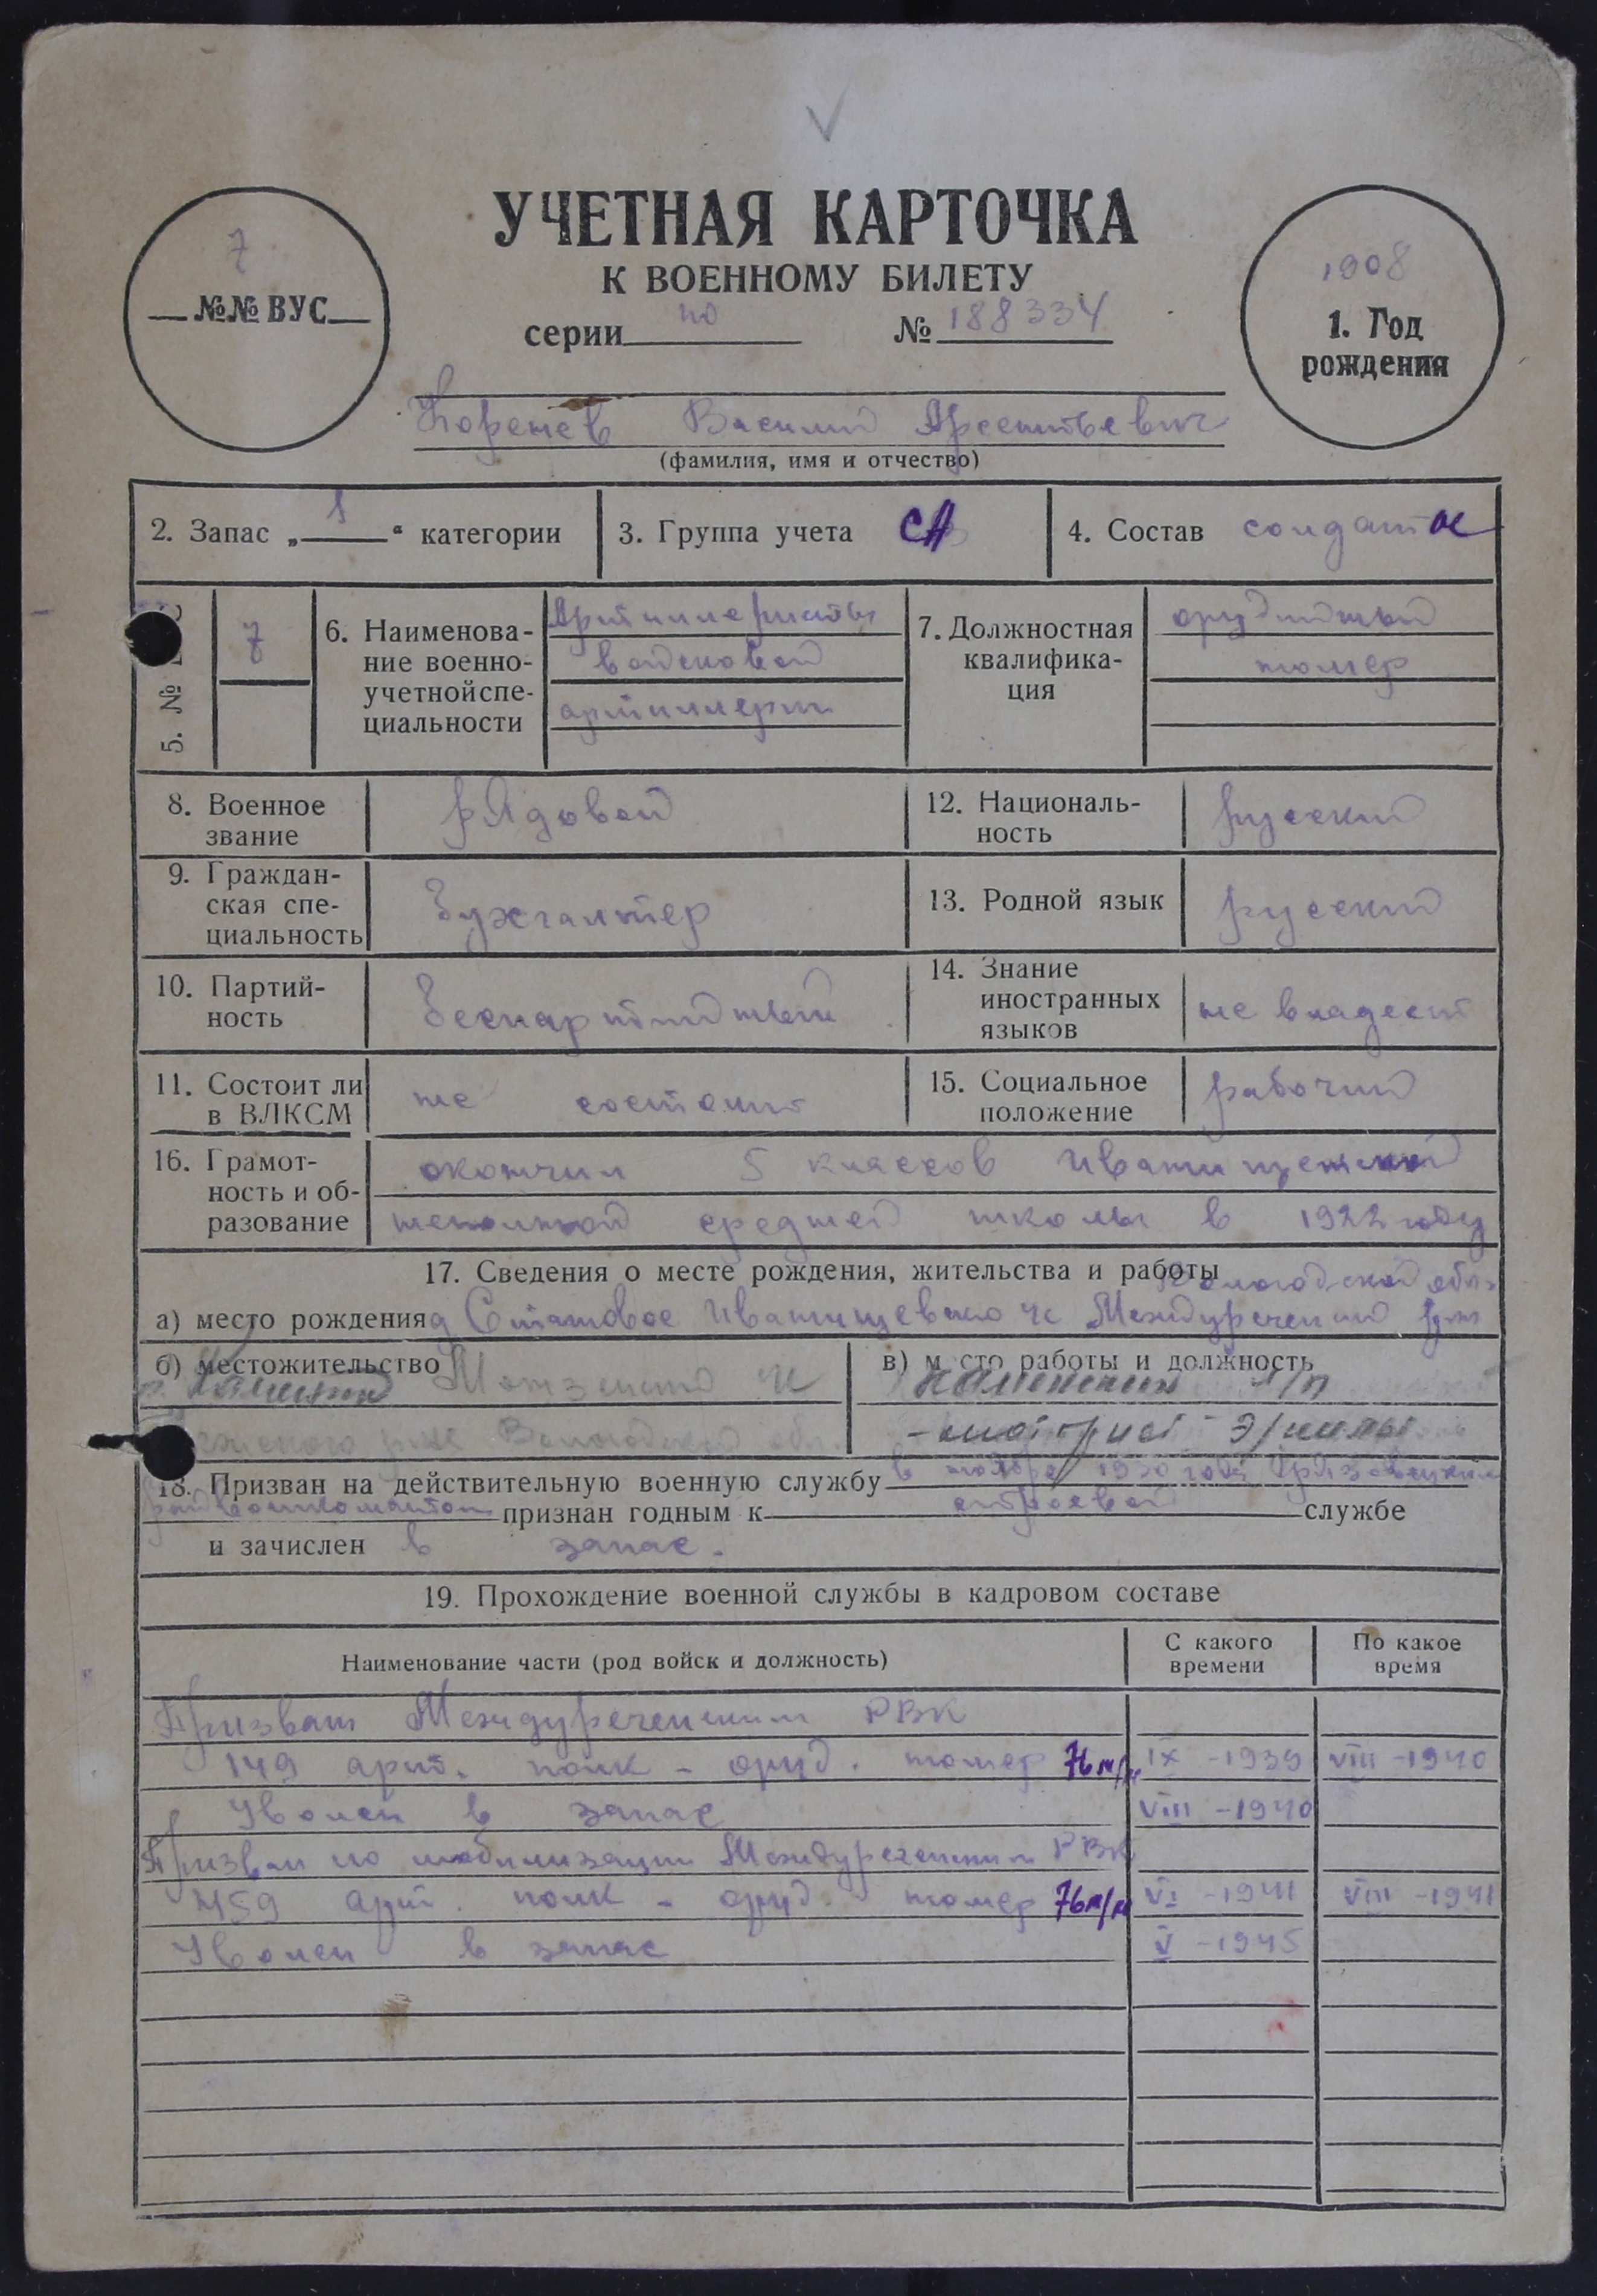 УЧЕТНАЯ КАРТОЧКА
К ВОЕННОМУ БИЛЕТУ
серии по № 188334
7
№№ ВУС
1908
1. Год
рождения
Коренев Василий Арсентьевич
(фамилия, имя и отчество)
2. Запас „ 1 “ категории
3. Группа учета СА
4. Состав солдат
5. №
7
6. Наименова-
ние военно-
учетной спе-
циальности
Артиллеристы
войсковой
артиллерии
7. Должностная
квалифика-
ция
орудийный
номер
8. Военное
звание
рядовой
12. Националь-
ность
русский
9. Граждан-
ская спе-
циальность
бухгалтер
13. Родной язык
русский
10. Партий-
ность
беспартийный
14. Знание
иностранных
языков
не владеет
11. Состоит ли
в ВЛКСМ
не состоит
15. Социальное
положение
рабочий
16. Грамот-
ность и об-
разование
окончил 5 классов
неполной средней школы в 1922 году
17. Сведения о месте рождения, жительства и работы
Вологодской обл.
а) место рождения д Становое Иванищевского с Междуреченский р-н
б) местожительство
в) м сто работы и должность
18. Призван на действительную военную службу в ноябре 1930 года Грязовецким
райвоенкоматом признан годным к строевой службе
и зачислен в запас.
19. Прохождение военной службы в кадровом составе
Наименование части (род войск и должность)
С какого
времени
По какое
время
Призван Междуреченским РВК
149 арт. полк - оруд. номер 76 м/м IX - 1939 VIII - 1940
Уволен в запас VIII - 1940
Призван по мобилизации Междуреченским РВК
459 арт. полк - оруд. номер 76 м/м VI - 1941 VIII - 1941
Уволен в запас V - 1945